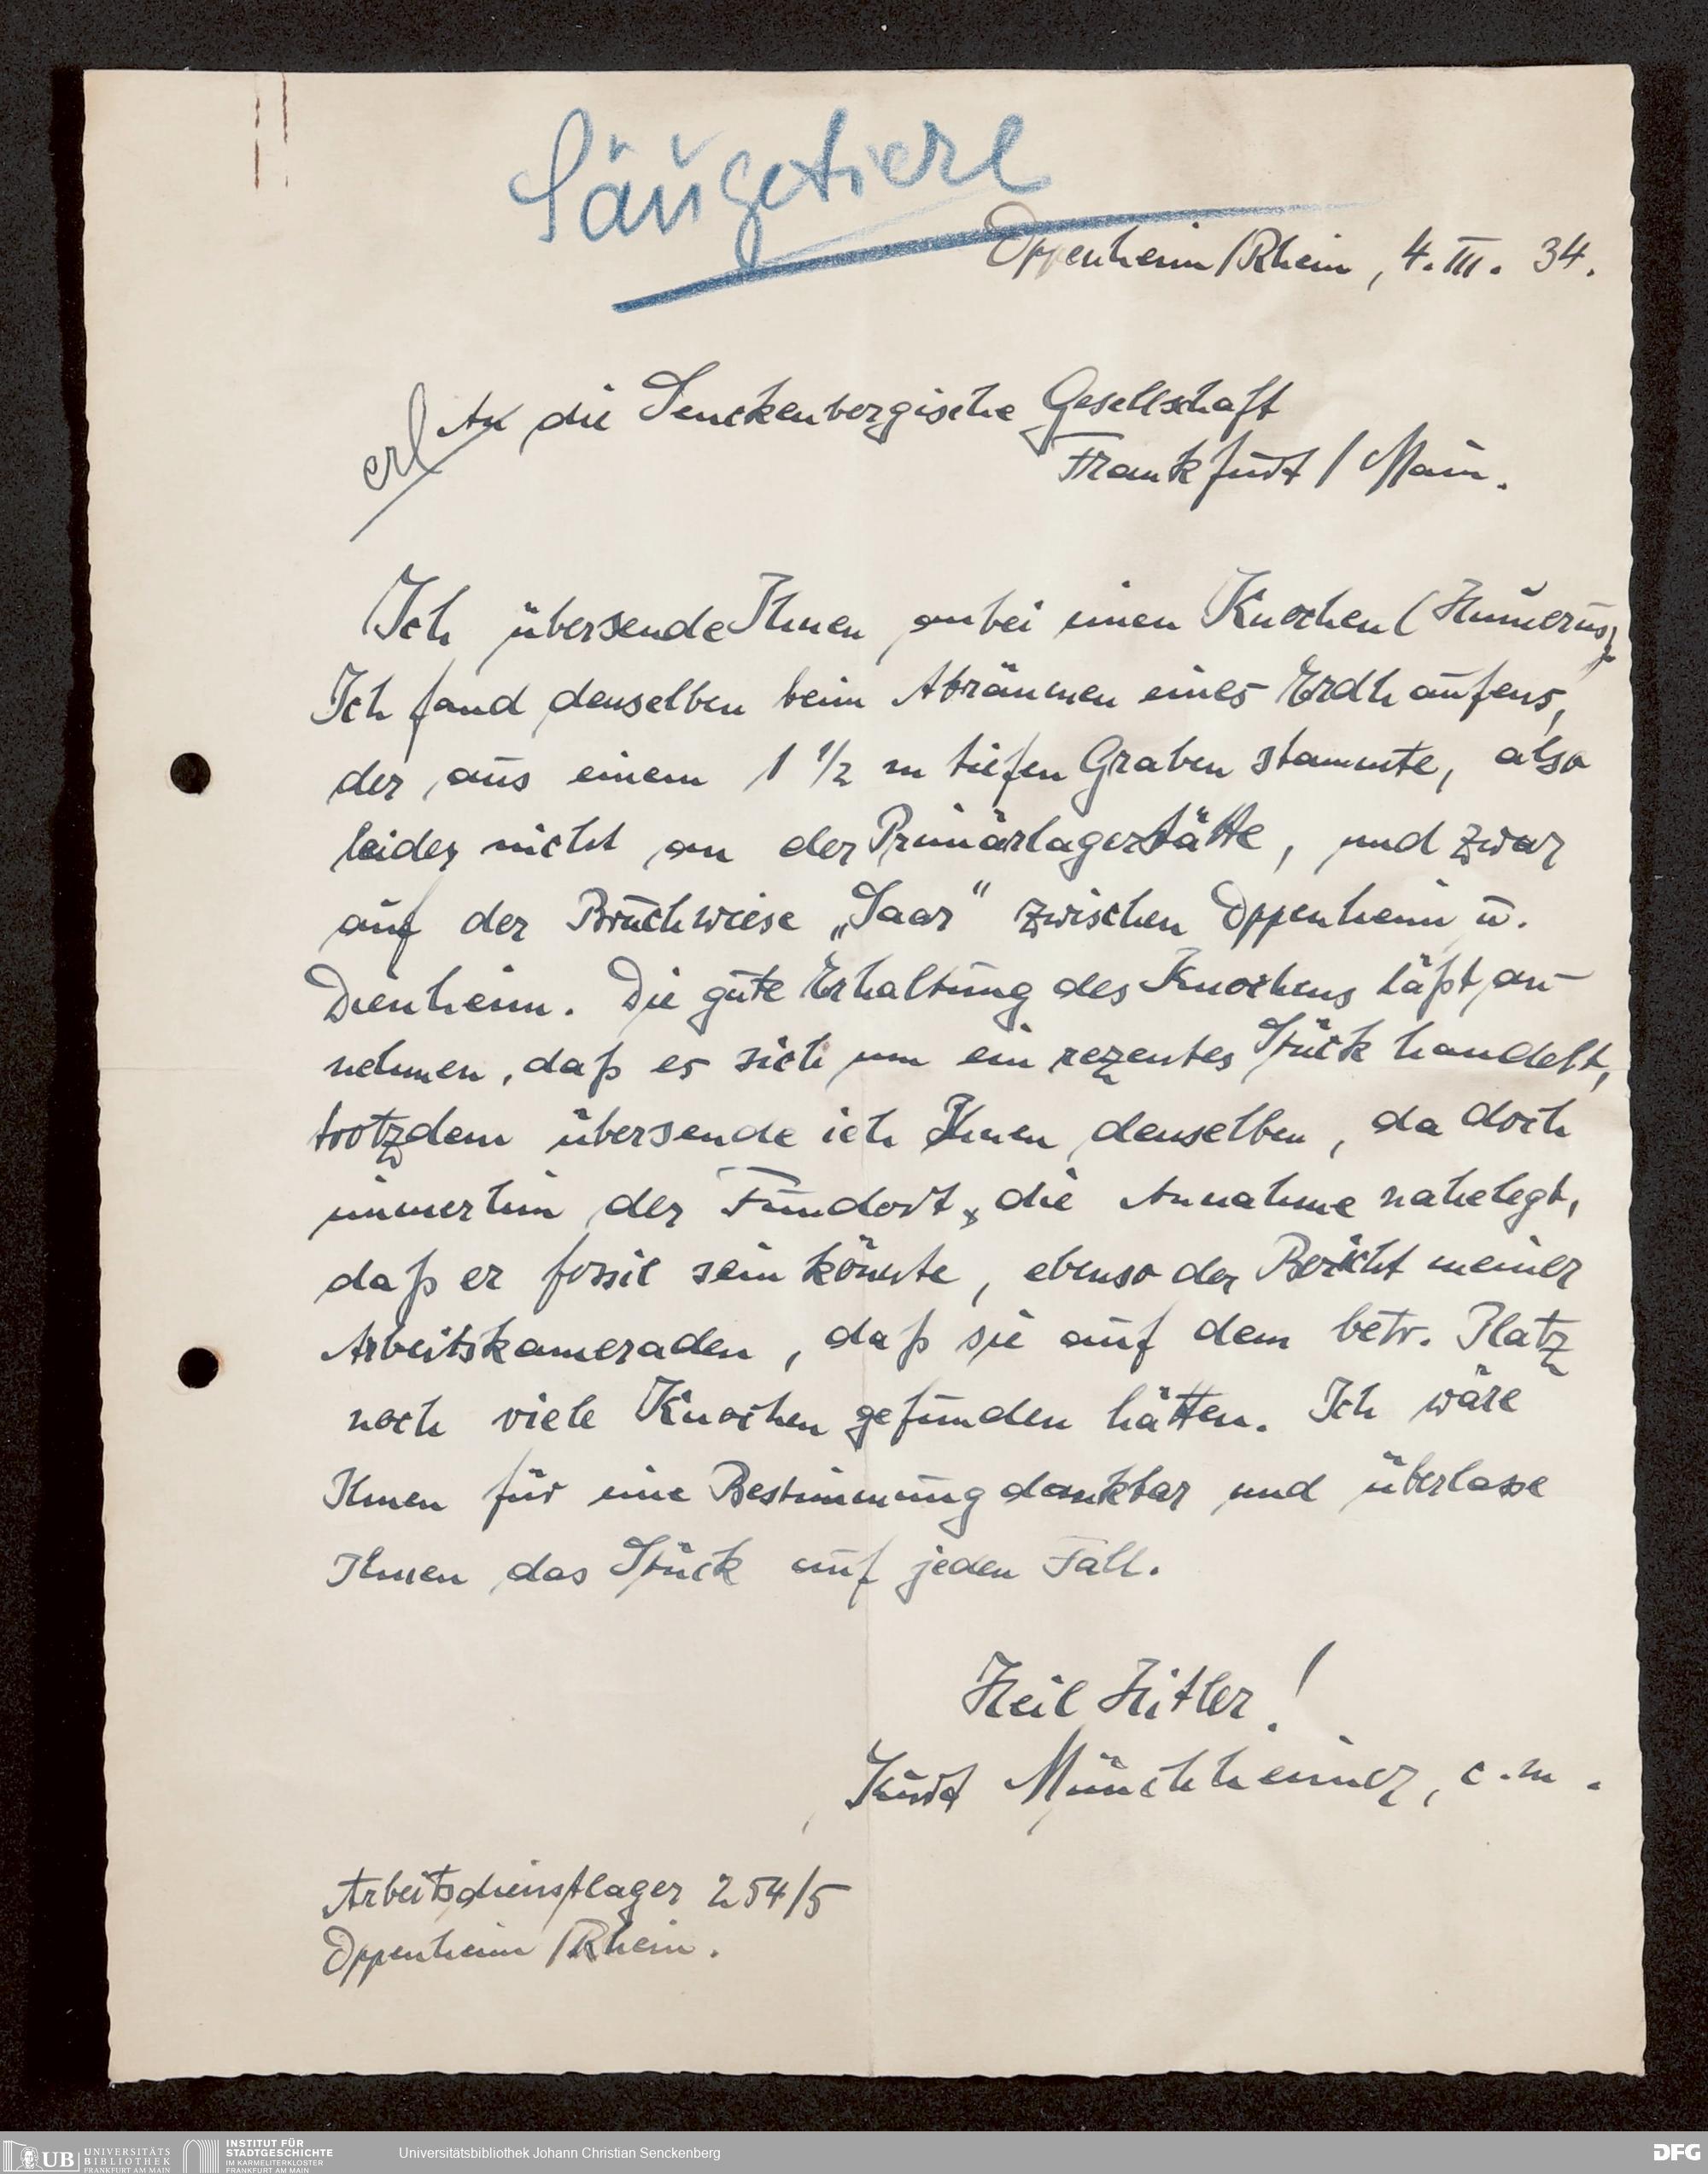 Säugetiere
Oppenheim/Rhein, 4. III. 34.
erl
An die Senckenbergische Gesellschaft
Frankfurt / Main.
Ich übersende Ihnen anbei einen Knochen (Humerus).
Ich fand denselben beim Abräumen eines Erdhaufens,
der aus einem 1 1/2 m tiefen Graben stammte, also
leider nicht an der Primärlagerstätte, und zwar
auf der Bruchwiese „Saar“ zwischen Oppenheim u.
Dienheim. Die gute Erhaltung des Knochens läßt an-
nehmen, daß es sich um ein rezentes Stück handelt,
trotzdem übersende ich Ihnen denselben, da doch
immerhin der Fundort, die Annahme nahelegt,
daß er fossil sein könnte, ebenso der Bericht meiner
Arbeitskameraden, daß sie auf dem betr. Platz
noch viele Knochen gefunden hätten. Ich wäre
Ihnen für eine Bestimmung dankbar und überlasse
Ihnen das Stück auf jeden Fall.
Heil Hitler!
Kurt Münchheimer, c. m.
Arbeitsdienstlager 254/5
Oppenheim/Rhein.
UB UNIVERSITÄTS
BIBLIOTHEK
FRANKFURT AM MAIN
INSTITUT FÜR
STADTGESCHICHTE
IM KARMELITERKLOSTER
FRANKFURT AM MAIN
Universitätsbibliothek Johann Christian Senckenberg
DFG